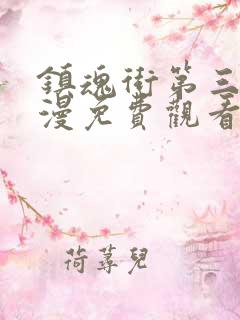 鎮魂街第三
漫免費觀看
荷萼兒